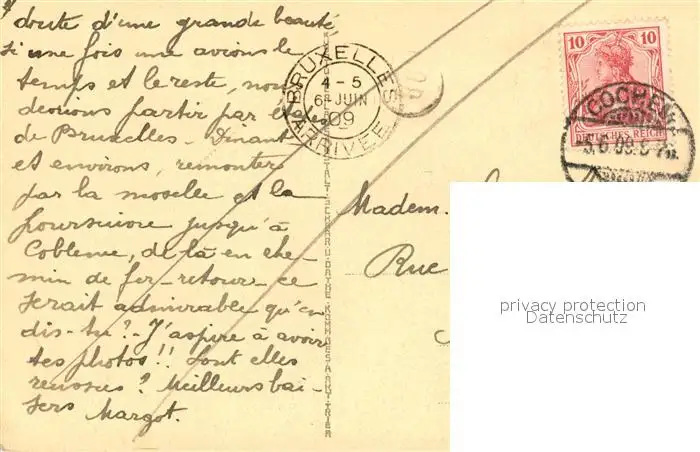 doute d'une grande beauté
si une fois nous avions le
temps et le reste, nous
devions partir par
de Bruxelles - Dinant
et environs, remonter
par la moselle et la
poursuivre jusqu'à
Coblence, de là en che-
min de fer - retour - ce
serait admirable qu'en
dis-tu? - J'aspire à avoir
tes photos!! Sont elles
reussies? Meilleurs bai-
sers Margot.
BRUXELLES
4 - 5
6 JUIN
09
ARRIVÉE
10 10
DEUTSCHES REICH
COCHEM
5.6.09.
Madem.
Rue
SCHAAR & DATHE
TRIER
privacy protection
Datenschutz